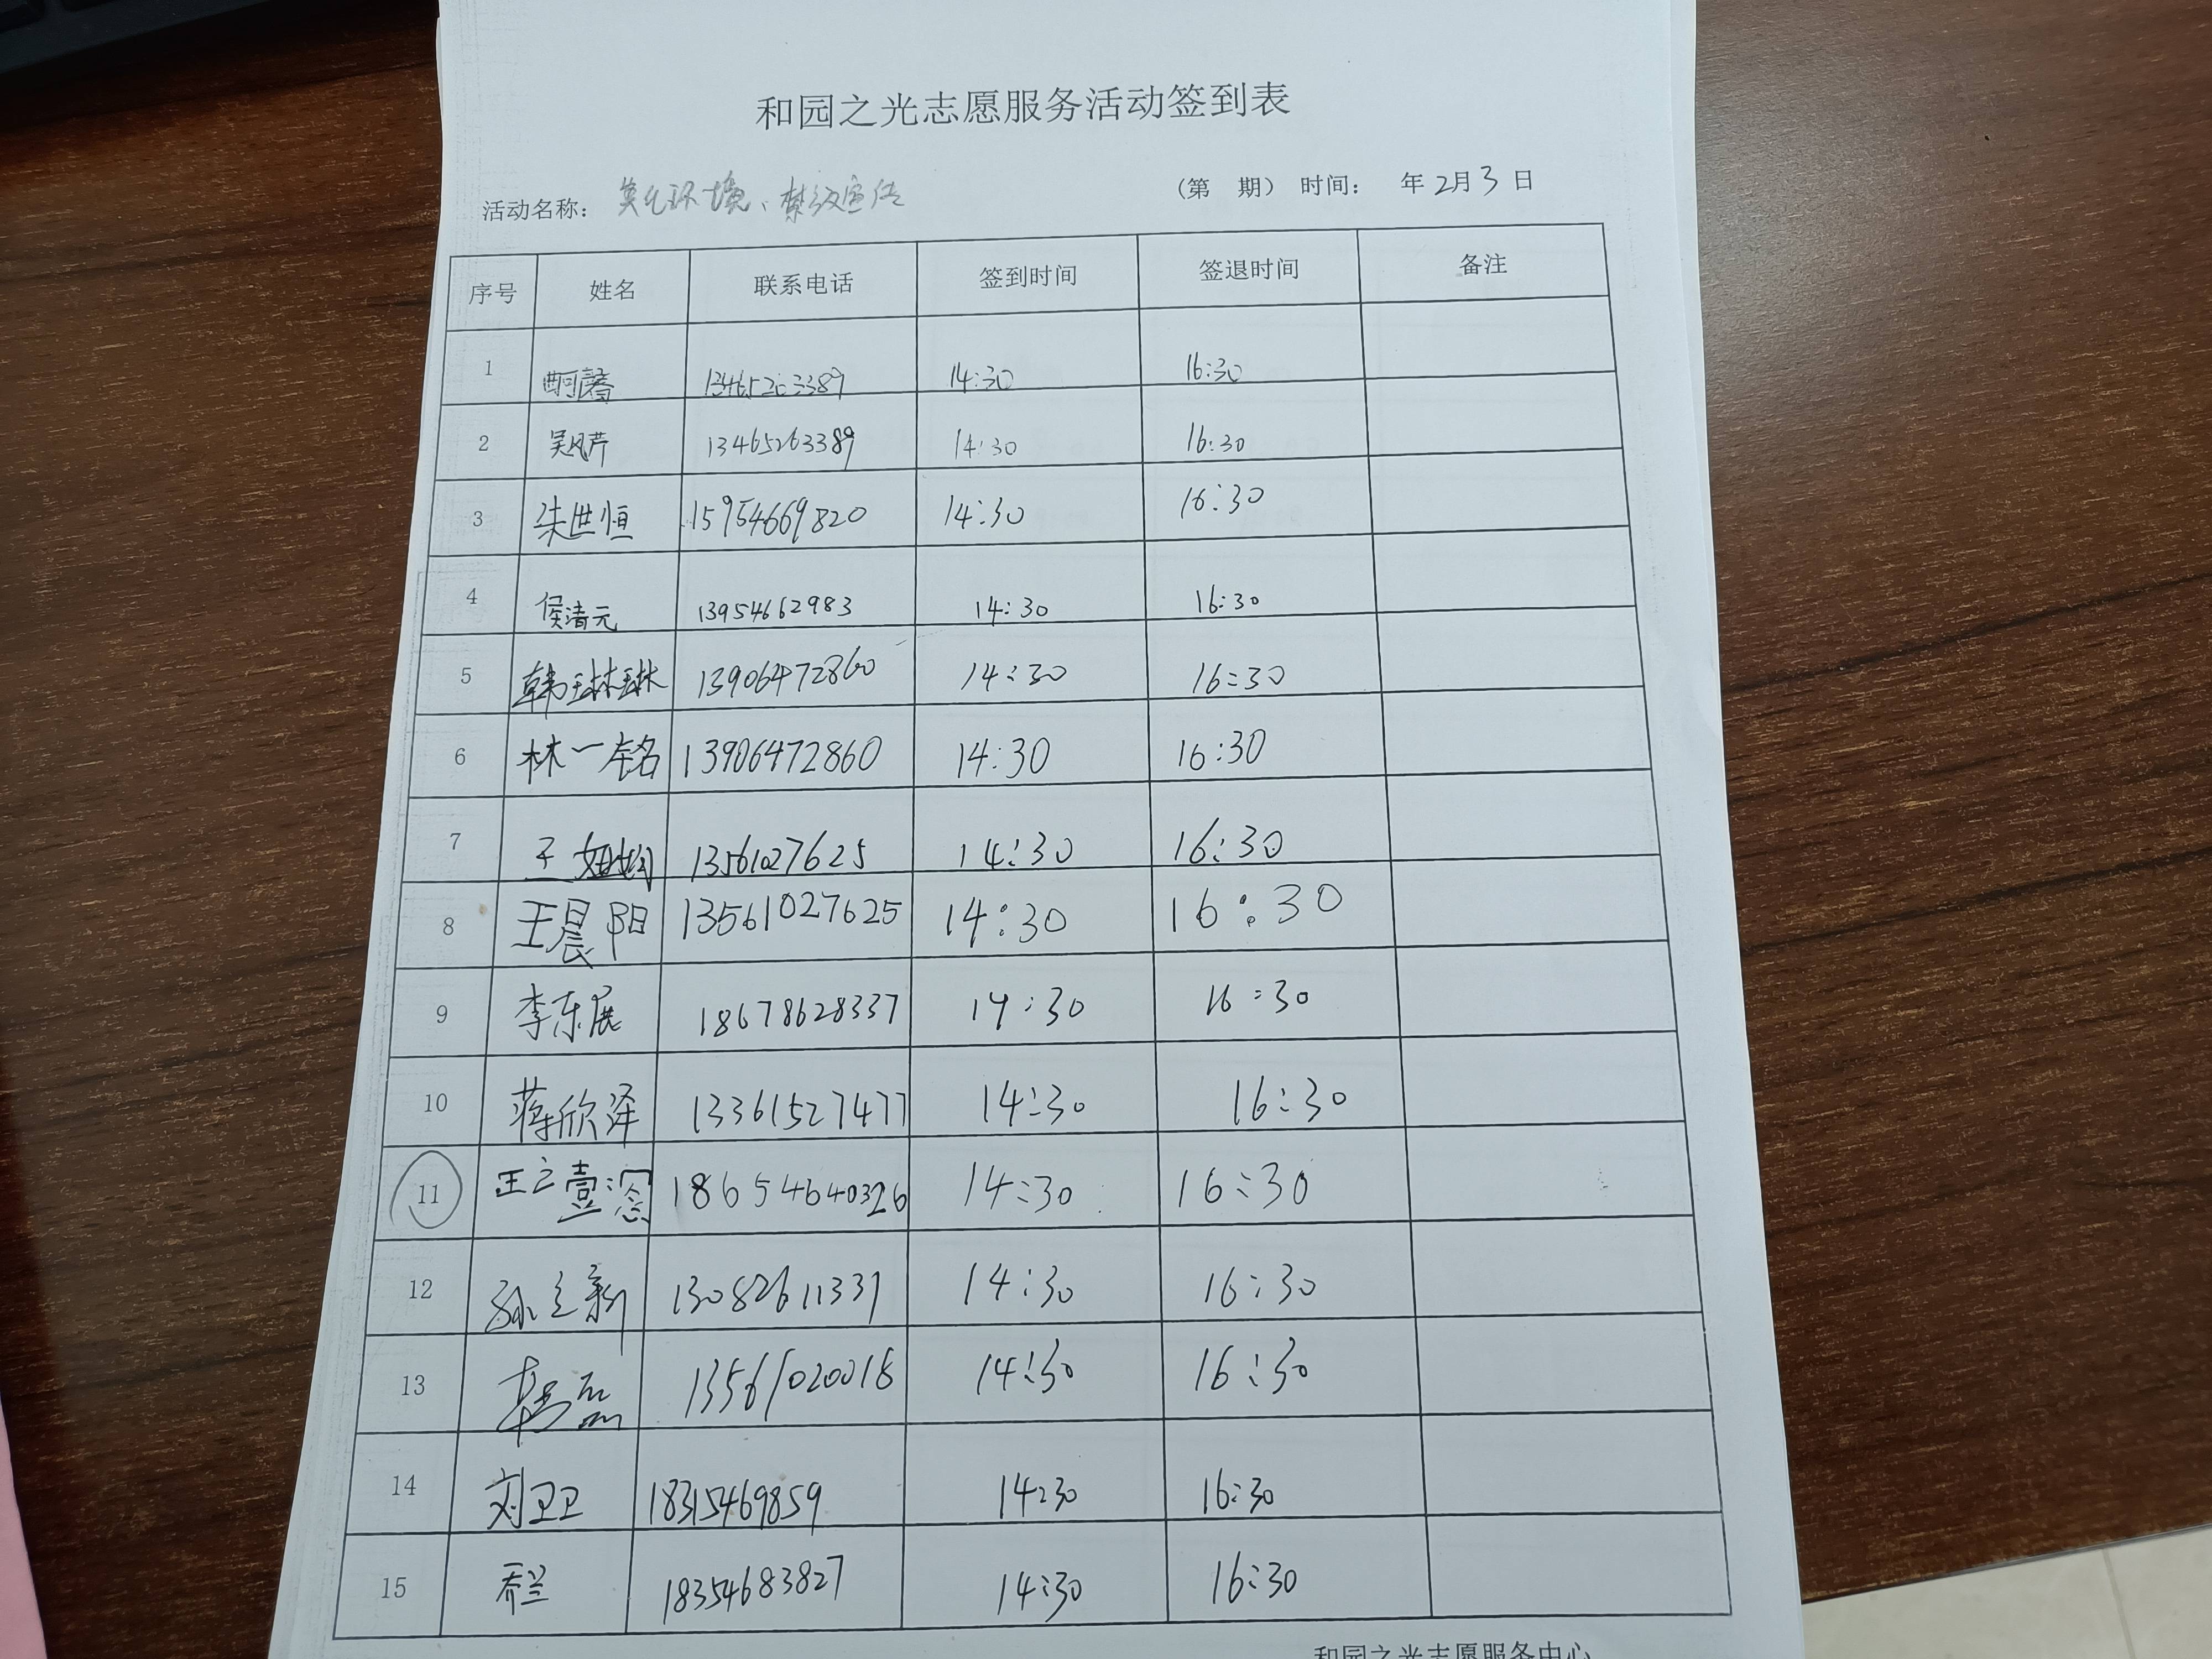 和园之光志愿服务活动签到表
活动名称： 美化环境、禁放宣传 （第 期） 时间： 年 2月 3 日
序号 姓名 联系电话 签到时间 签退时间 备注
1 14:30 16:30
2 吴风芹 13465263389 14:30 16:30
3 朱世恒 15954669820 14:30 16:30
4 侯清元 13954662983 14:30 16:30
5 韩琳琳 13906472860 14:30 16:30
6 林一 13906472860 14:30 16:30
7 王 13561027625 14:30 16:30
8 王晨阳 13561027625 14:30 16:30
9 李东展 18678628337 14:30 16:30
10 蒋欣泽 13361527477 14:30 16:30
11 18654640326 14:30 16:30
12 孙立新 13082611331 14:30 16:30
13 韩磊 13561020018 14:30 16:30
14 刘卫卫 18315469859 14:30 16:30
15 乔兰 18354683827 14:30 16:30
和园之光志愿服务中心